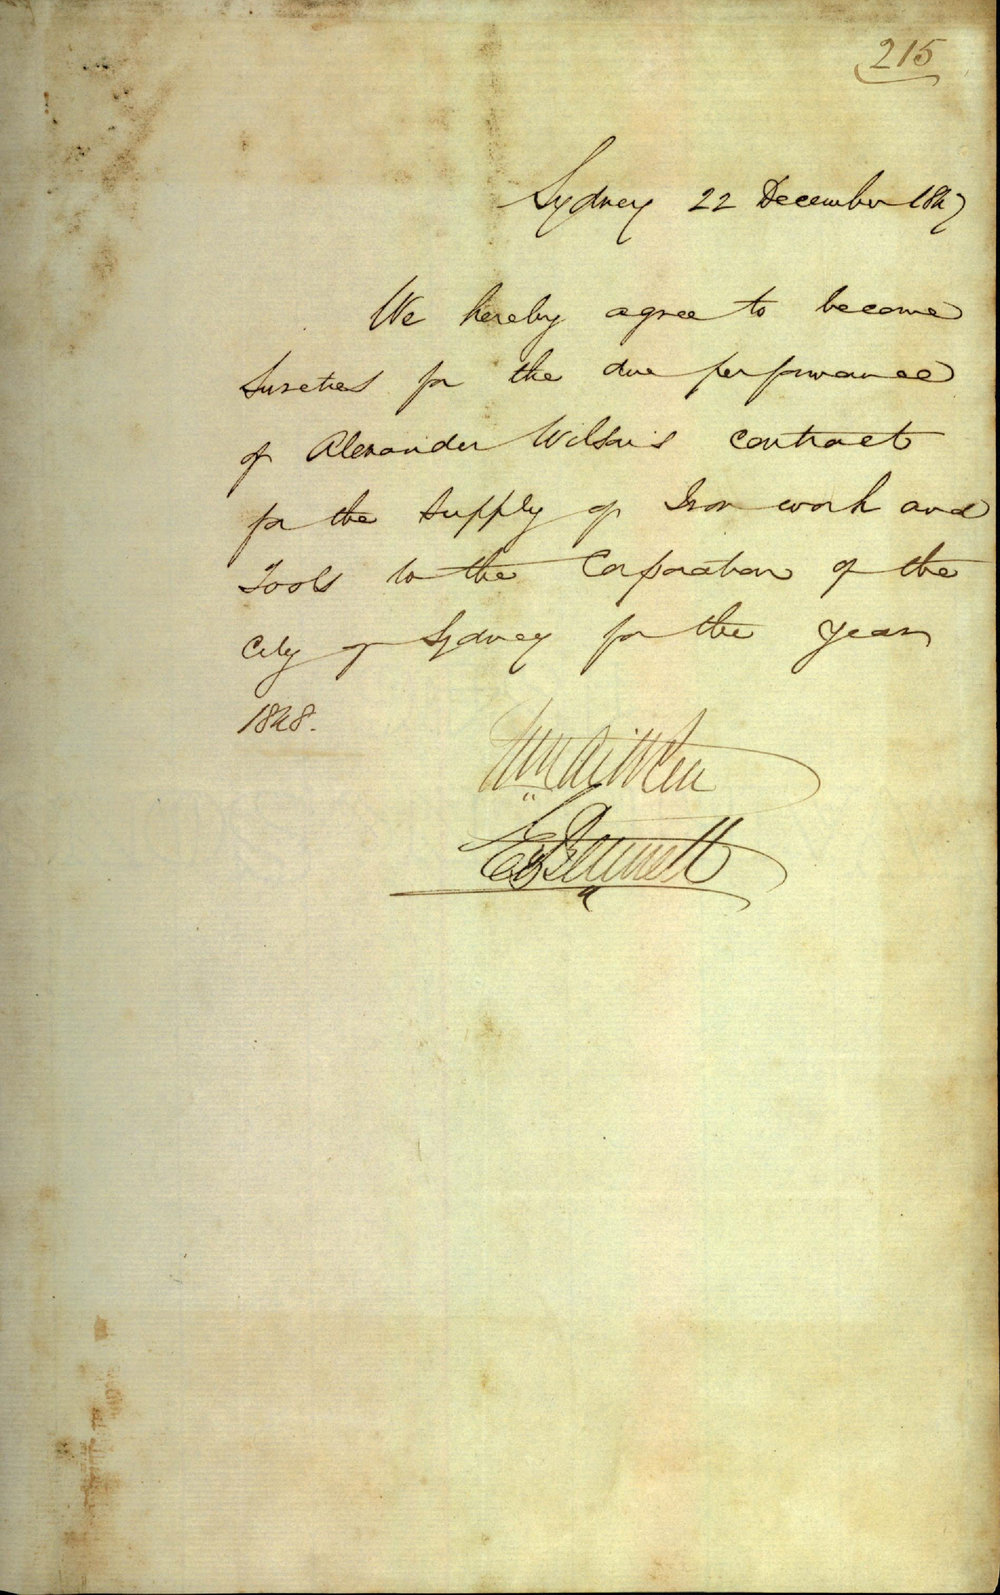 215
Sydney 22 December 1847
We hereby agree to become
Sureties for the due performance
of Alexander Wilson's contract
for the Supply of Iron work and
Tools to the Corporation of the
City of Sydney for the year
1848.
Wm Aitken
Bennett